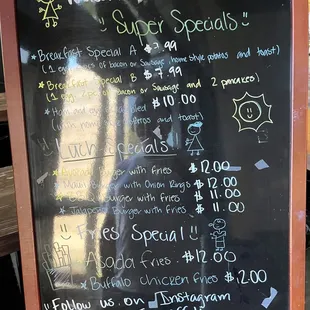 Super Specials
Breakfast Special A $7.99
(1 egg, of bacon or Sausage, home style potatos and toast)
Breakfast Special B $7.99
(1 egg, bacon or Sausage and 2 pancakes)
$10.00
(with and toast)
Lunch Specials
Burger with fries $12.00
Burger with Onion Rings $12.00
Burger with fries $11.00
Jalapeño Burger with fries $11.00
Fries Special!
Asada fries $12.00
Buffalo chicken fries $12.00
Follow us on Instagram